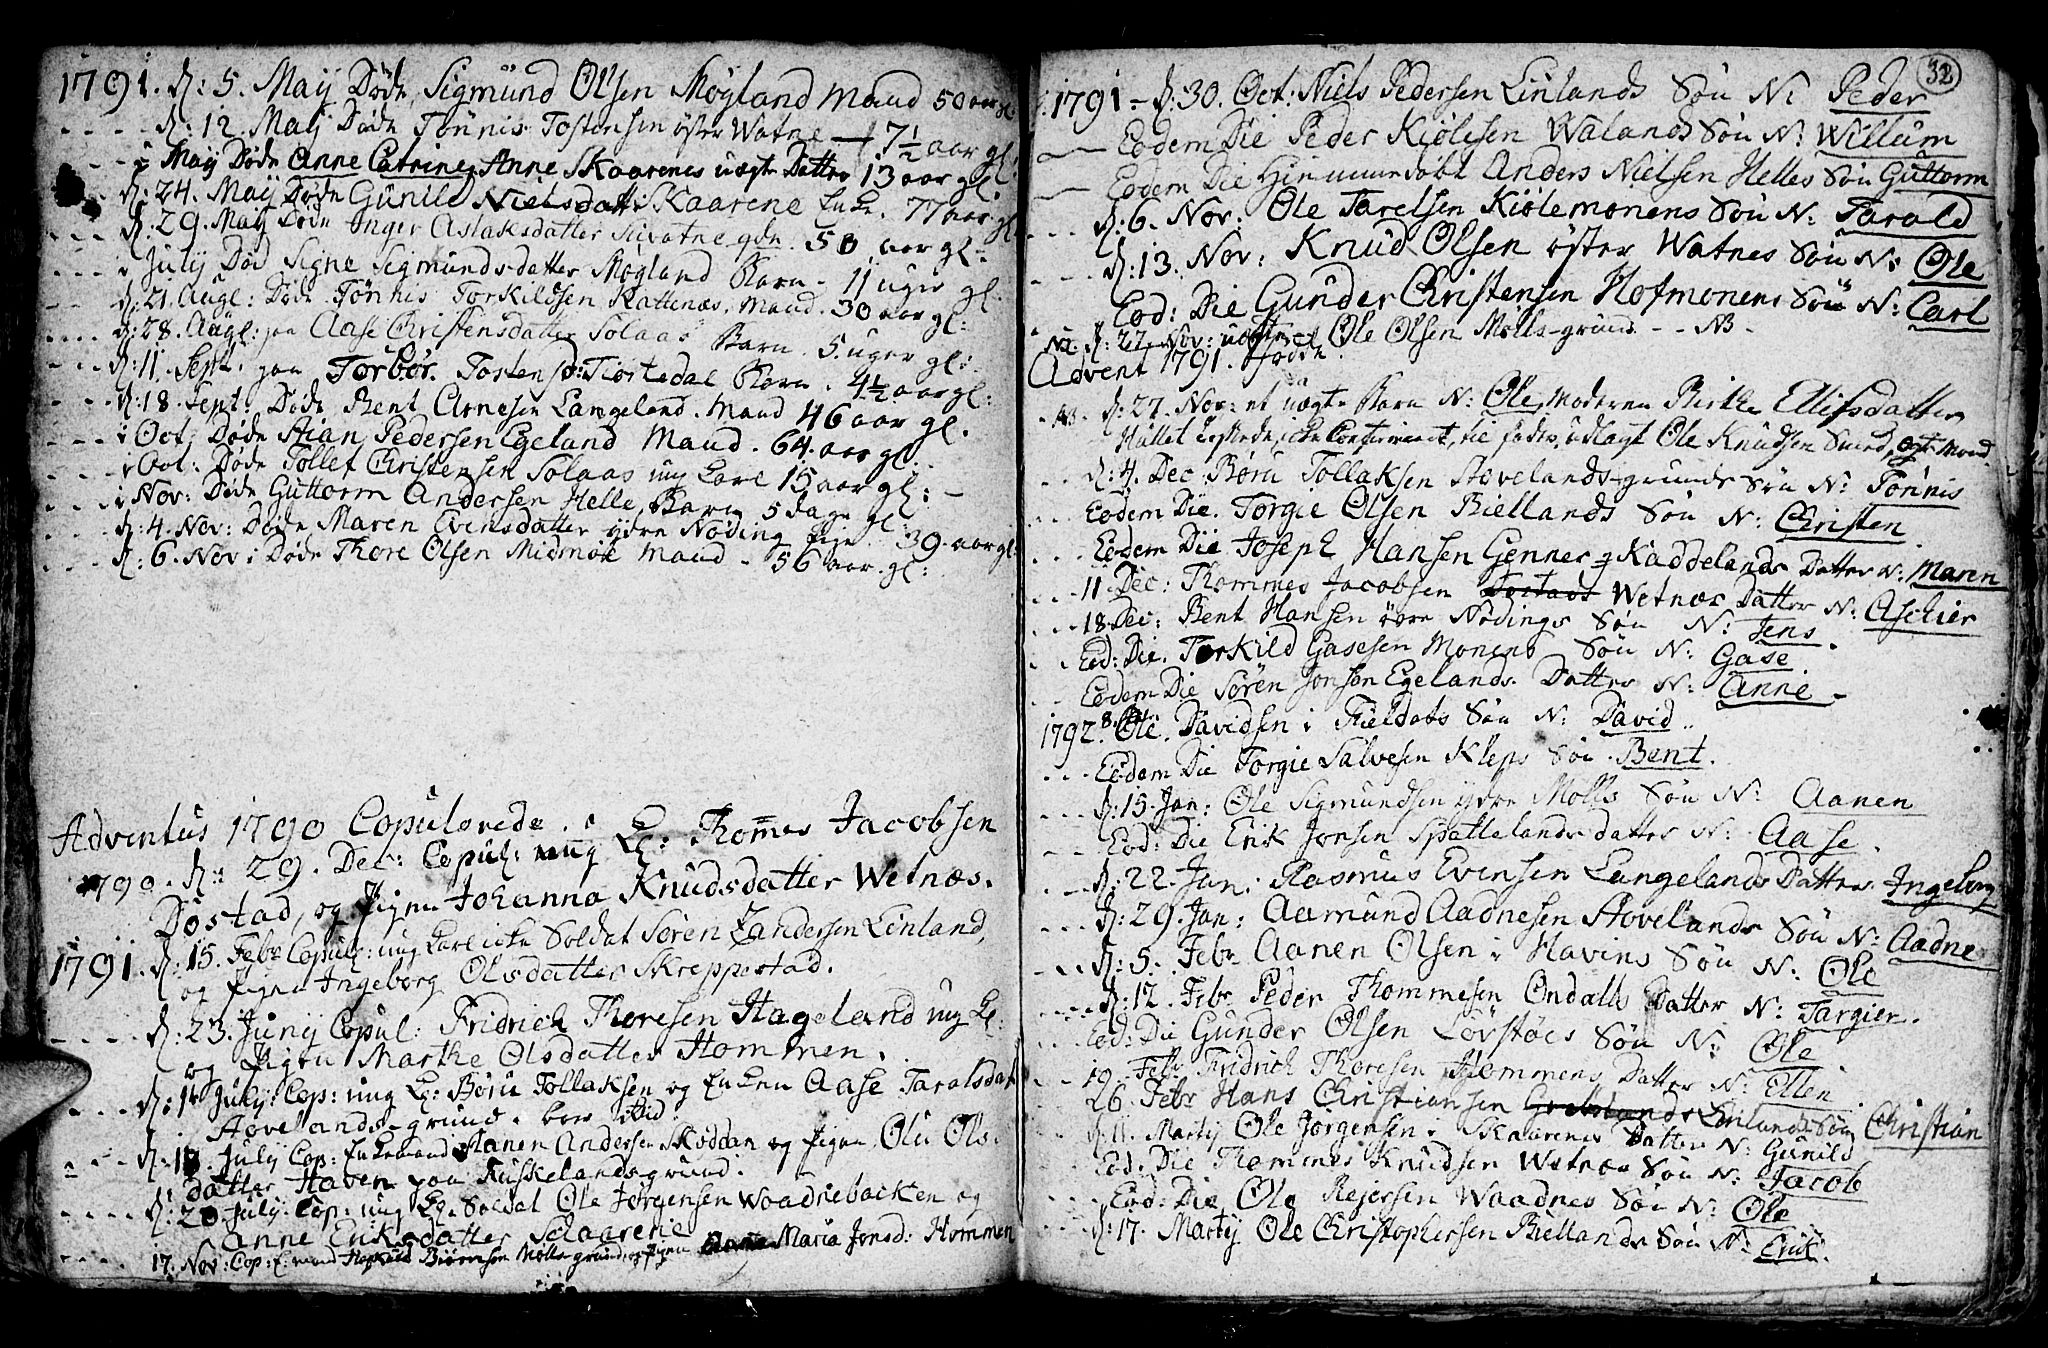 1791. d: 5. Maij Døde, Sigmund Olsen Møgland Mand 50 aar gl:
d: 12. Maij Døde Tønnis Tostensen öster Watne 7½ aar gl:
i Maij Døde Anne Catrine Anne Skaarenes uægte Datter 13 aar gl:
d: 24. Maij Døde Gunild Nielsdatter Skaarene Enke. 77 aar gl:
d: 29. Maij Døde Inger Aslaksdatter 50 aar gl:
i July Død Signe Sigmundsdatter Møgland Barn. 11 uger gl:
d: 21. Augl: Døde Tønnis Torkildsen Kattenæs, Mand. 30 aar gl:
d: 28. Augl: Aase Christensdatter Solaas Barn. 5. uger gl:
d: 11. Sept. Torbør Tostensd: Barn. 4½ aar gl:
d: 18. Sept: Døde Bent Arnesen Langeland. Mand 46 aar gl.
i Oct: Døde Stian Pedersen Egeland Mand. 64 aar gl.
i Oct: Døde Tollef Christensen Solaas ung Karl 15 aar gl:
i Nov: Døde Guttorm Andersen Helle, Barn 5 dage gl:
d: 4. Nov: Døde Maren Evensdatter ydre Nøding Pige. 39. aar gl:
d: 6. Nov: Døde Thore Olsen Midmøe Mand 56 aar. gl:
Adventus 1790 Copulerede.
1790. d: 29. Dec: Copul: ung K: Thommes Jacobsen
Dostad, og Pigen Johanna Knudsdatter Wetnæs.
1791. d: 15. Febr. Copul: ung Karl icke Soldat Sören Zandersen Linland,
og Pigen Ingeborg Olsdatter Skreppestad.
d: 23. Junij Copul: Fridrich Thoresen Hageland ung K:
og Pigen Marthe Olsdatter Hommen.
d: July: Cop: ung K: Børu Tollaksen og Enken Aase Taralsdatter
Hovelands-grund.
d: July Cop: Enkemand Aanen Andersen Skoddan og Pigen Olu Ols-
datter Haven paa Ruskelands grund.
d: 20 July: Cop: ung K. Soldat Ole Jørgensen Waadnebacken og
Anne Eriksdatter Schaarene
17. Nov: Cop: E: mand Biørensen Molls-grund, og Pigen Maria Jonsd: Hommen
32
1791 - d: 30. Oct: Niels Pedersen Linlands Søn N: Peder
Eodem Die Peder Kiölesen Walands Søn N: Willum
Eodem Die Hiemmedøbt Anders Nielsen Helles Søn Guttorm
d: 6. Nov: Ole Tarelsen Kiölemonens Søn N: Tarald
d: 13. Nov: Knud Olsen öster Watnes Søn N: Ole
Eod: Die Gunder Christensen Hofmonens Søn N: Carl
d: 27. Nov: Ole Olsen Molls-grund. - - NB -
Advent 1791. Fødde.
d: 27. Nov: et uægte Barn N: Ole, Moderen Birthe Ellifsdatter
icke Confirmeret, til Fader, udlagt Ole Knudsen
d: 4. Dec Børu Tollaksen Hovelands-grunds Søn N: Tønnis
Eodem Die. Torgie Olsen Biellands Søn N: Christen
Eodem Die Joseph Hansen Kaddelands Datter N: Maren
11. Dec: Thommes Jacobsen Wetnæs Datter N: Aschier
18. Dec: Bent Hansen øvre Nødings Søn N: Jens
Eod: Die. Torkild Gasesen Monens Søn N: Gase
Eodem Die Sören Jonsen Egelands Datter N: Anne
1792. 8. Jan: Ole Davidsen i Søn N: David.
Eodem Die Torgie Salvesen Kleps Søn Bent.
d: 15. Jan: Ole Sigmundsen ydre Molls Søn N: Aanen
Eod: Die Erik Jonsen Spættelands datter N: Aase.
d: 22. Jan: Rasmus Evensen Langelands Datter Ingeborg
d: 29. Jan: Aamund Aadnesen Hovelands Søn N: Aadne
d: 5. Febr Aanen Olsen i Havens Søn N: Ole
d: 12. Febr Peder Thommesen Ondals Datter N: Targier.
Eod: Die Gunder Olsen Løvstøes Søn N: Ole
19. Febr Fridrich Thoresen Hommens Datter N: Ellen
26. Febr Hans Christiansen Linlands Søn Christian
d: 11. Martij Ole Jørgensen i Skaarenes Datter N: Gunild
Eod: Die Thommes Knudsen Wetnæs Søn N: Jacob
Eod: Die Ole Rejersen Waadnes Søn N: Ole
d: 17. Martij Ole Christophersen Biellands Søn N: Erik.